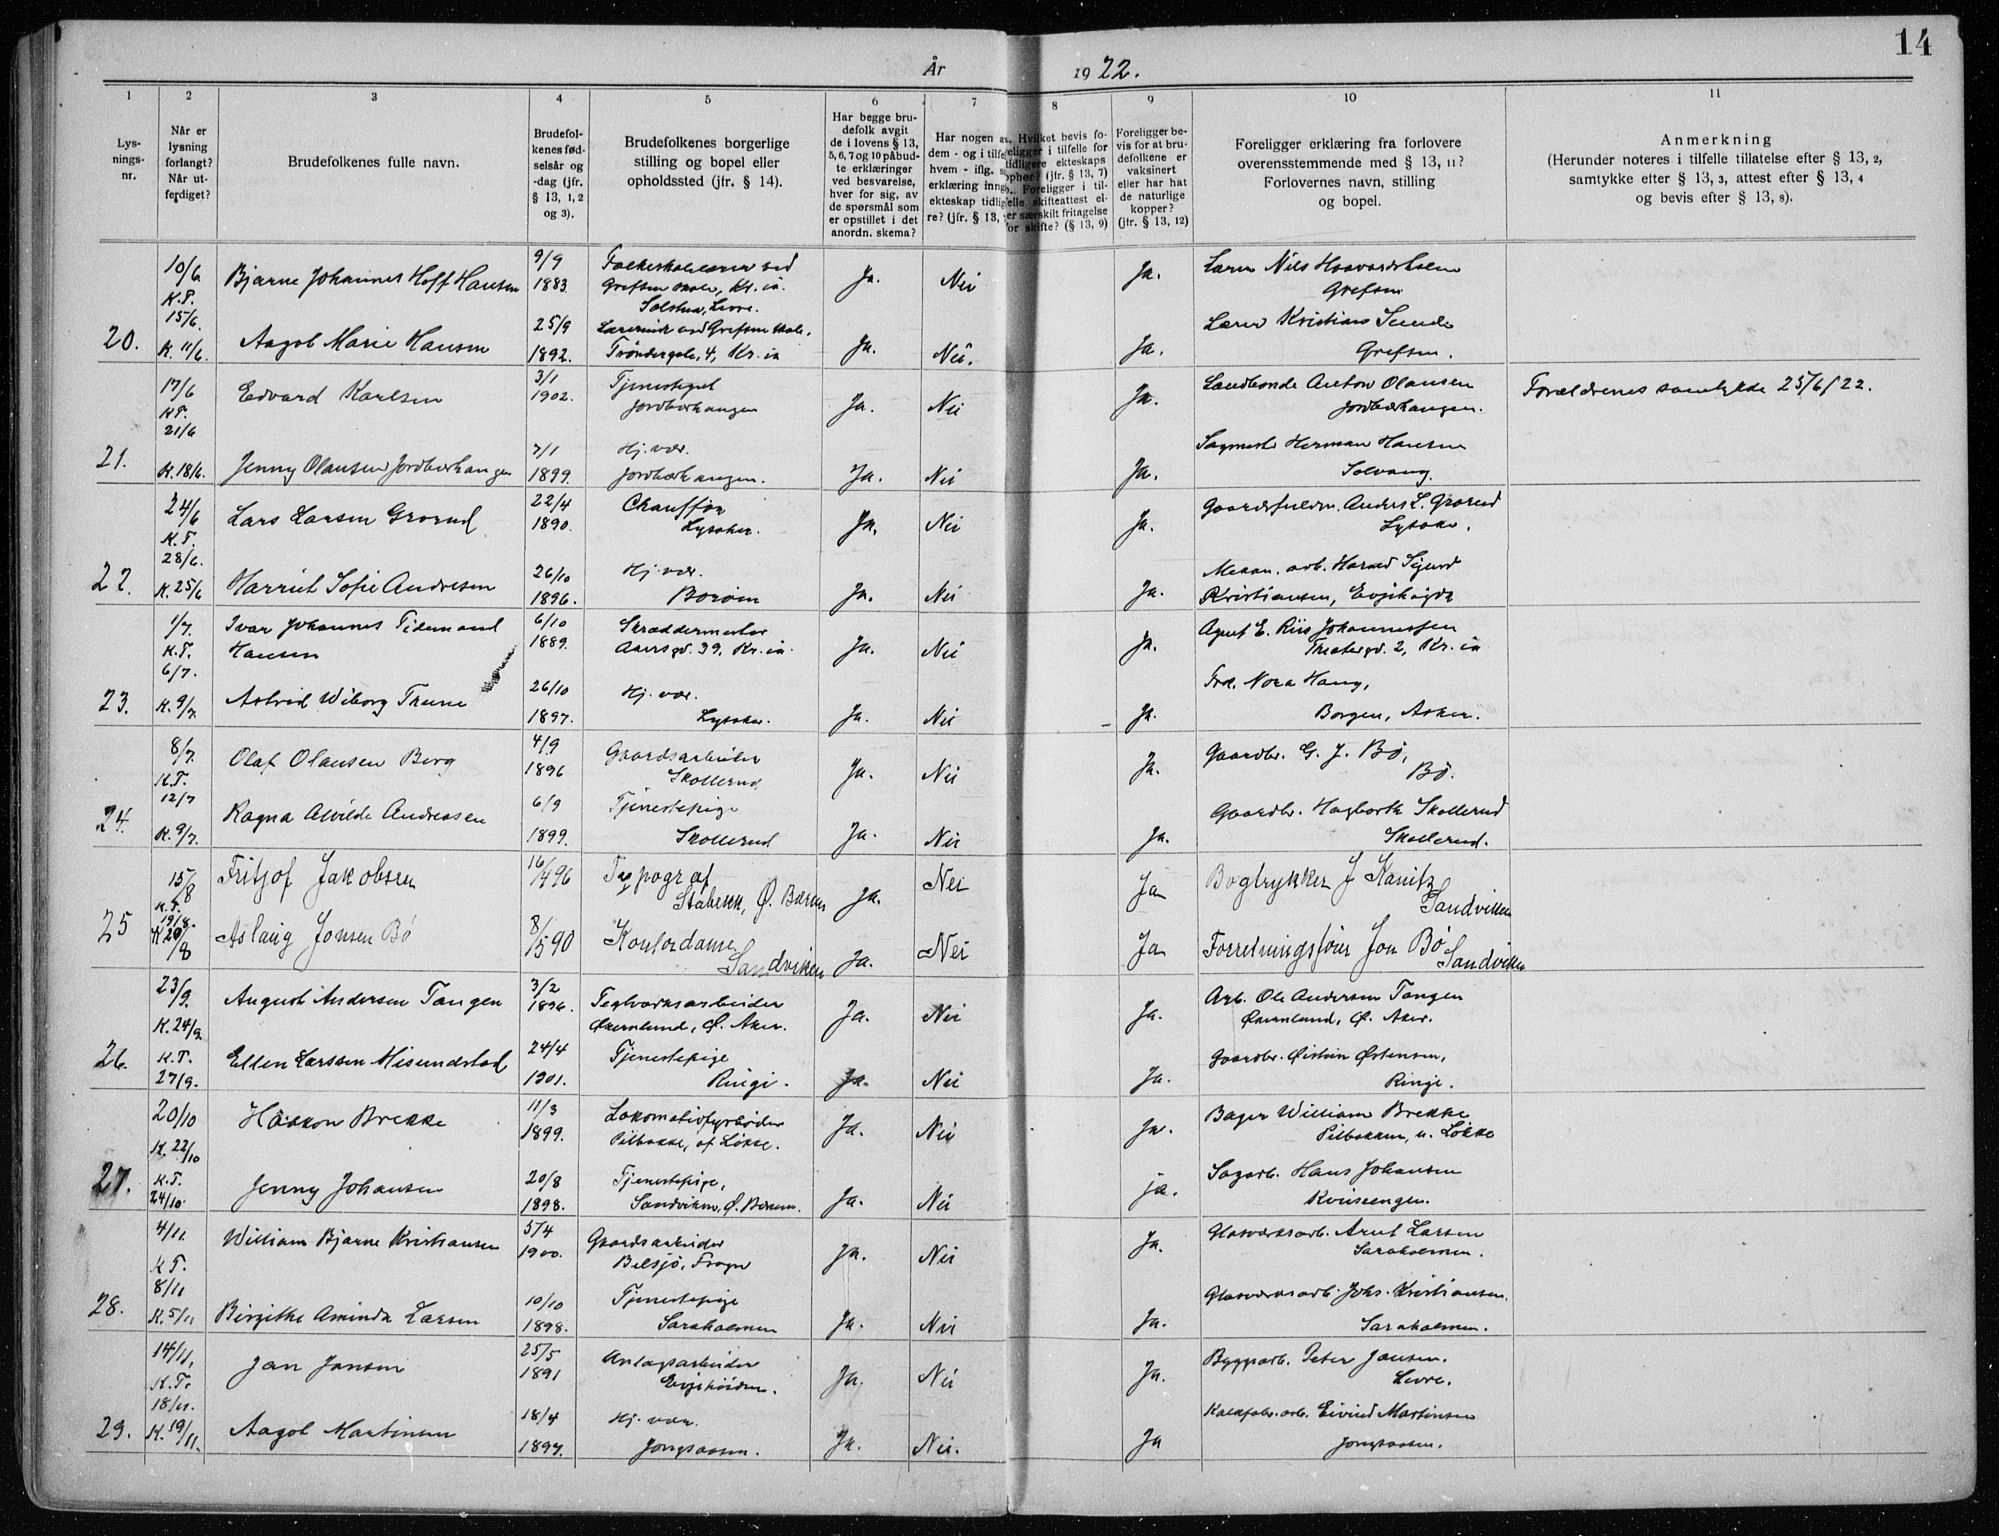 14
År 1922.
1 2 3 4 5 6 7 8 9 10 11
Lysningsnr.
Når er lysning forlangt? Når utferdiget?
Brudefolkenes fulle navn.
Brudefolkenes fødselsår og -dag (jfr. § 13, 1, 2 og 3).
Brudefolkenes borgerlige stilling og bopel eller opholdssted (jfr. § 14).
Har begge brudefolk avgit de i lovens § 13, 5, 6, 7 og 10 påbudte erklæringer ved besvarelse, hver for sig, av de spørsmål som er opstillet i det anordn. skema?
Har nogen av dem - og i tilfe hvem - iflg. erklæring inng ekteskap tidlig re? (jfr. § 13,
Hvilket bevis foreligger i tilfelle for tidligere ekteskaps ophør? (jfr. § 13, 7) Foreligger i tilfelle skifteattest eller særskilt fritagelse for skifte? (§ 13, 9)
Foreligger bevis for at brudefolkene er vaksinert eller har hat de naturlige kopper? (jfr. § 13, 12)
Foreligger erklæring fra forlovere overensstemmende med § 13, 11? Forlovernes navn, stilling og bopel.
Anmerkning
(Herunder noteres i tilfelle tillatelse efter § 13, 2, samtykke efter § 13, 3, attest efter § 13, 4 og bevis efter § 13, 8).
10/6 K.T. 15/6. Bjarne Johannes Hoff Hansen 9/9 1883 Folkeskolelærer ved Grefsen skole, Kr.ia. Ja. Nei Ja. Lærer Nils Haavardsholm Grefsen
20. K. 11/6. Aagot Marie Hansen 25/9 1892. Lærerinde ved Grefsen skole, Trøndergt. 4, Kr.ia Ja. Nei. Ja. Lærer Kristian Sunde Grefsen.
17/6 K.T. 21/6 Edvard Karlsen 3/1 1902. Jordbærhaugen Ja. Nei Ja. Landhandl. Anton Olausen Jordbærhaugen. Forældrenes samtykke 25/6/22.
21. K. 18/6. Jenny Olausen Jordbærhaugen 7/1 1899. Hj. vær. Jordbærhaugen. Ja. Nei Ja. Sagmester Herman Hansen Solvang.
24/6 K.T. 28/6. Lars Larsen Grorud 22/4 1890. Chauffør Lysaker. Ja. Nei Ja. Anders L. Grorud Lysaker.
22. K. 25/6 Harriet Sofie Andresen 26/10 1896. Hj. vær. Ja. Nei Ja. Mekan. arb. Harald Sigurd Kristiansen, Evjehøyda
1/7. K.T. 6/7. Ivar Johannes Tidemand Hansen 6/10 1889. Skræddermester 39, Kr.ia. Ja. Nei Ja. Agent E. Riis Johannessen Theatergt. 2, Kr.ia
23. K. 9/7. Astrid Wiborg Thune 26/10 1897. Hj. vær. Lysaker. Ja. Nei Ja. Frk. Nora Haug, Borgen, Asker.
8/7. K.T. 12/7 Olaf Olausen Berg 4/9 1896 Gaardsarbeider Skollerud Ja. Nei Ja. Gaardbr. G. J. Bø, Bø.
24. K. 9/7. Ragna Alvilde Andreasen 6/9 1899. Tjenestepige Skollerud Ja. Nei Ja. Gaardbr. Hagbarth Skollerud Skollerud.
15/8 K.T. 19/8. Fritjof Jakobsen 16/4 96 Typograf Stabekk, Ø. Bærum Ja. Nei Ja Bogtrykker J Kanitz Sandviken
25 K 20/8 Aslaug Jonsen Bø 8/5 90 Kontordame Sandviken Ja. Nei Ja Forretningsfører Jon Bø Sandviken
23/9. K. 24/9 August Andersen Tangen 3/2 1896. Teglværksarbeider Økernlund, Ø. Aker. Ja. Nei Ja. Arb. Ole Andersen Tangen Økernlund, Ø. Aker.
26. K.T. 27/9. Ellen Larssen Misundstad 24/4 1901. Tjenestepige Ringi. Ja. Nei Ja. Gaardbr. Øistein Østensen, Ringi.
20/10 K. 22/10 Haakon Brekke 11/3 1899. Lokomotivfyrbøder Pilbakke, af Løkke. Ja. Nei Ja. Bager William Brekke Pilbakken, u. Løkke
27. K.T. 24/10. Jenny Johansen 20/8 1898. Tjenestepige, Sandviken, Ø. Bærum. Ja. Nei ja. Sagarb. Hans Johansen
4/11 K.T. 8/11 William Bjarne Kristiansen 5/4 1900. Gaardsarbeider Belsjø, Frogn Ja. Nei Ja. Glasværksarb. Arnt Larsen Saraholmen.
28. K. 5/11 Birgithe Aminda Larsen 10/10 1898. Tjenestepige Saraholmen Ja. Nei Ja. Glasværksarb. Johs. Kristiansen. Saraholmen.
14/11. K.T. 18/11. Jan Jansen 25/5 1891 Anlægsarbeider Evjehøiden. Ja. Nei Ja. Byggearb. Peter Jansen. Levre.
29. K. 19/11. Aagot Martinsen 18/4 1897. Hj. vær. Jongsaasen. Ja. Nei. Ja Kalkfabr. arb. Eivind Martinsen Jongsaasen.